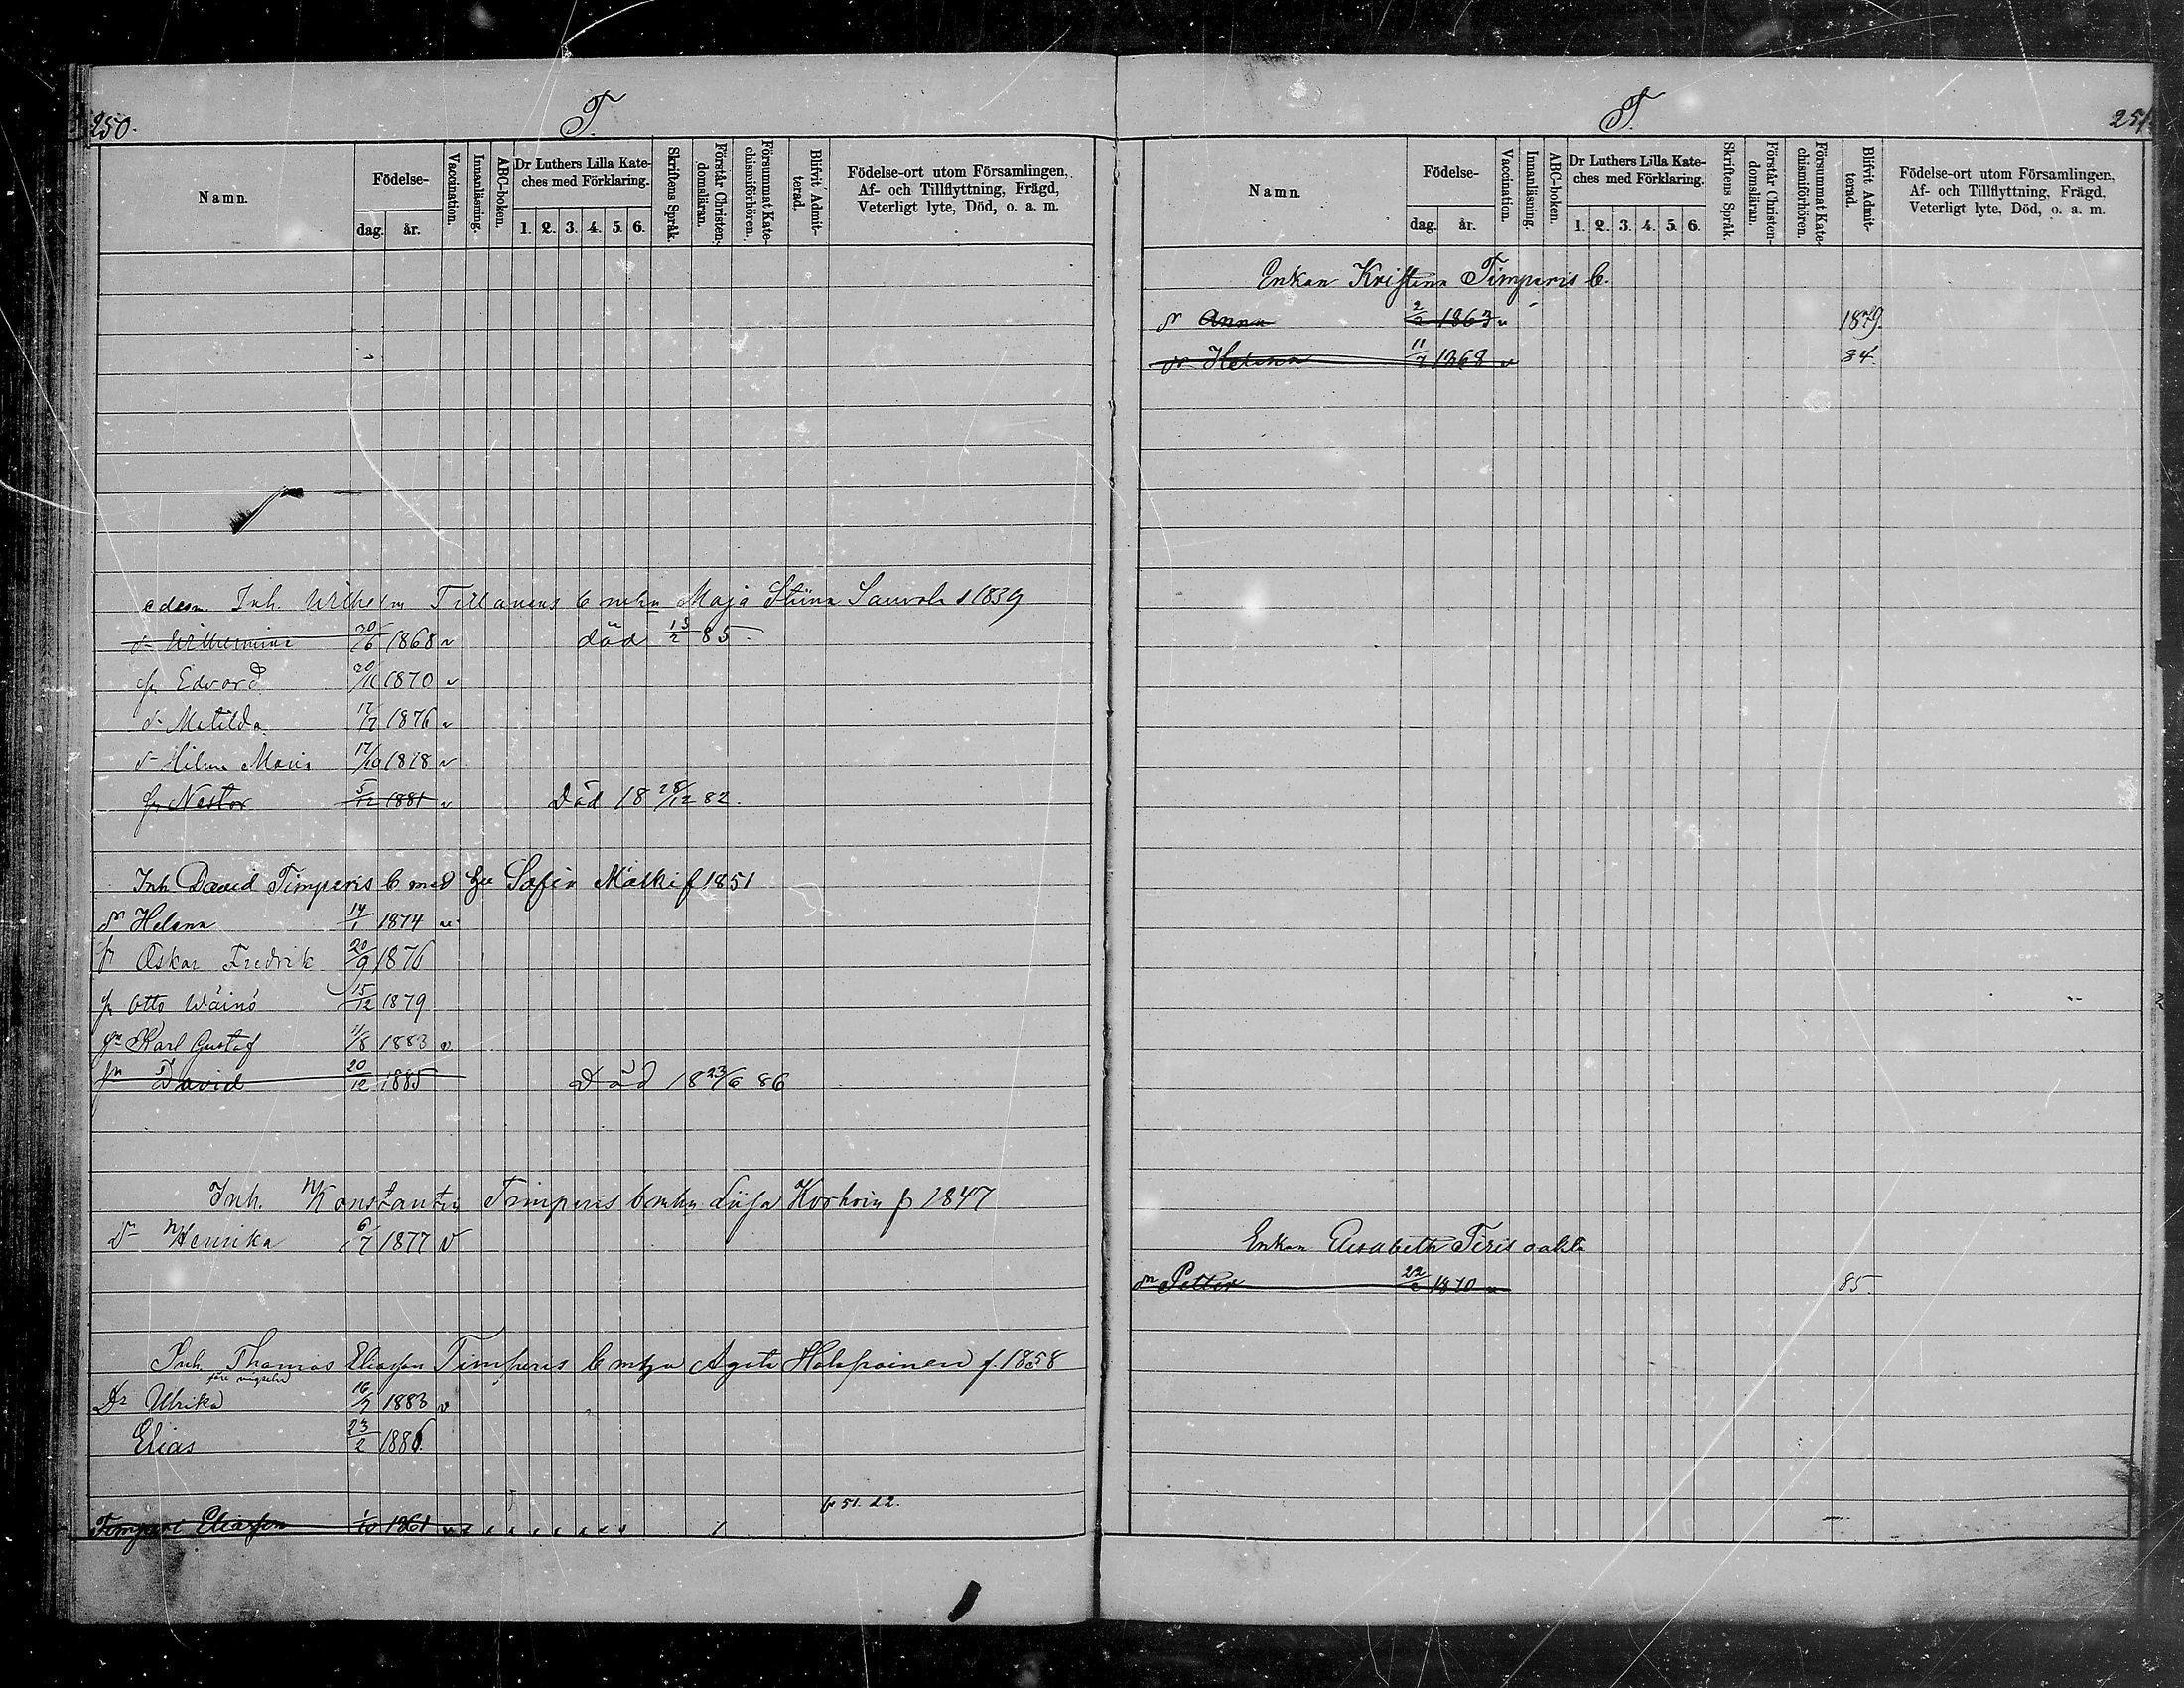 250.
T.
Namn.
Födelse-
dag.
år.
Vaccination.
Innanläsning.
ABC-boken.
Dr Luthers Lilla Kate-
ches med Förklaring.
1. 2. 3. 4. 5. 6.
Skriftens Språk.
Förstår Christen-
domsläran.
Försummat Kate-
chismiförhören.
Blifvit Admit-
terad.
Födelse-ort utom Församlingen,
Af- och Tillflyttning, Frägd,
Veterligt lyte, Död, o. a. m.
Inh. Wilhelm Tillanens b mhu Maja Stiina 1839
dr Wilhelmina 20/6 1868 v död 13/2 85.
fr Edvard 20/11 1870 v
dr Matilda 17/7 1876 v
dr Hilma Maria 17/10 1878 v
fr Nestor 5/12 1881 v Död 18 28/12 82.
Inh David Timperis b med hu Sofia Mälki f 1851
dr Helena 14/1 1874 v
fr Oskar Fredrik 20/9 1876
fr Otto Wäinö 15/12 1879
fr Karl Gustaf 11/8 1883 v
fr David 20/12 1885 Död 18 23/6 86
Inh. Konstantin Timperis b mhu Liisa Korhoin f 1847
Dr Henrika 6/7 1877 v
Inh Thomas Eliasson Timperis b mhu Agata Holopainen f. 1858
Dr Ulrika 16/7 1883 v
Elias 23/2 1886.
b 51. 22.
Timperi Eliasson 1/10 1861
T.
251.
Namn.
Födelse-
dag.
år.
Vaccination.
Innanläsning.
ABC-boken.
Dr Luthers Lilla Kate-
ches med Förklaring.
1. 2. 3. 4. 5. 6.
Skriftens Språk.
Förstår Christen-
domsläran.
Försummat Kate-
chismiförhören.
Blifvit Admit-
terad.
Födelse-ort utom Församlingen,
Af- och Tillflyttning, Frägd,
Veterligt lyte, Död, o. a. m.
Enkan Kristina Timperis b.
dr Anna 2/2 1863 v 1879.
dr Helena 11/7 1868 v 84.
Enkan Elisabeth
Petter 22/ 1870 v 85.